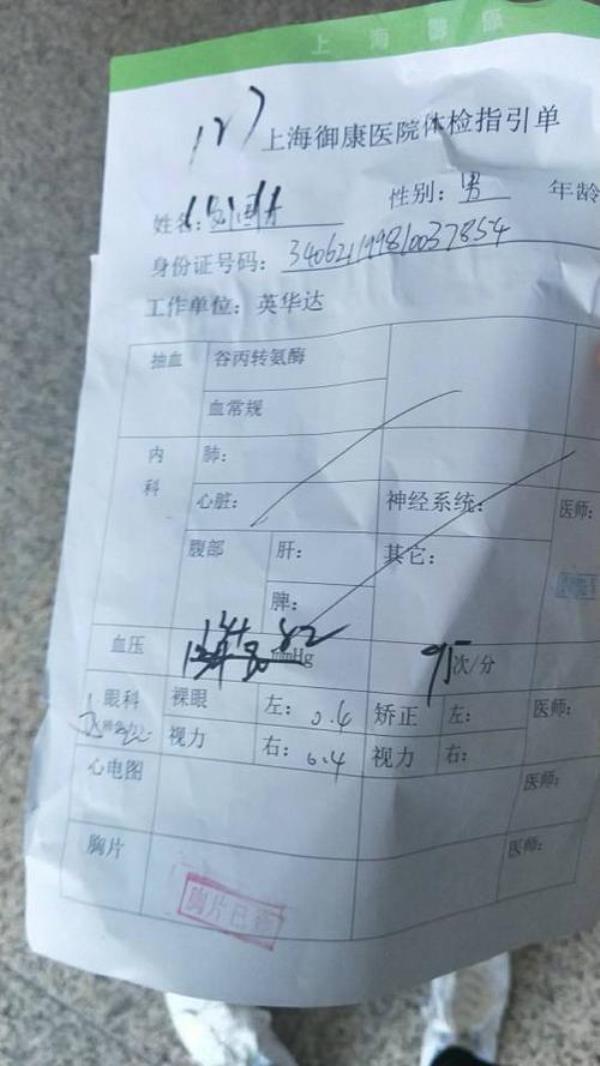 上海御康
127 上海御康医院体检指引单
姓名: 性别: 男 年龄
身份证号码: 340621199810037854
工作单位: 英华达
抽血 谷丙转氨酶
血常规
内科 肺:
心脏: 神经系统: 医师:
腹部 肝: 其它:
脾:
血压 144 82 mmHg 95次/分
眼科 裸眼视力 左: 0.4 矫正视力 左: 医师:
右: 0.4 右:
心电图 医师:
胸片 医师:
胸片已